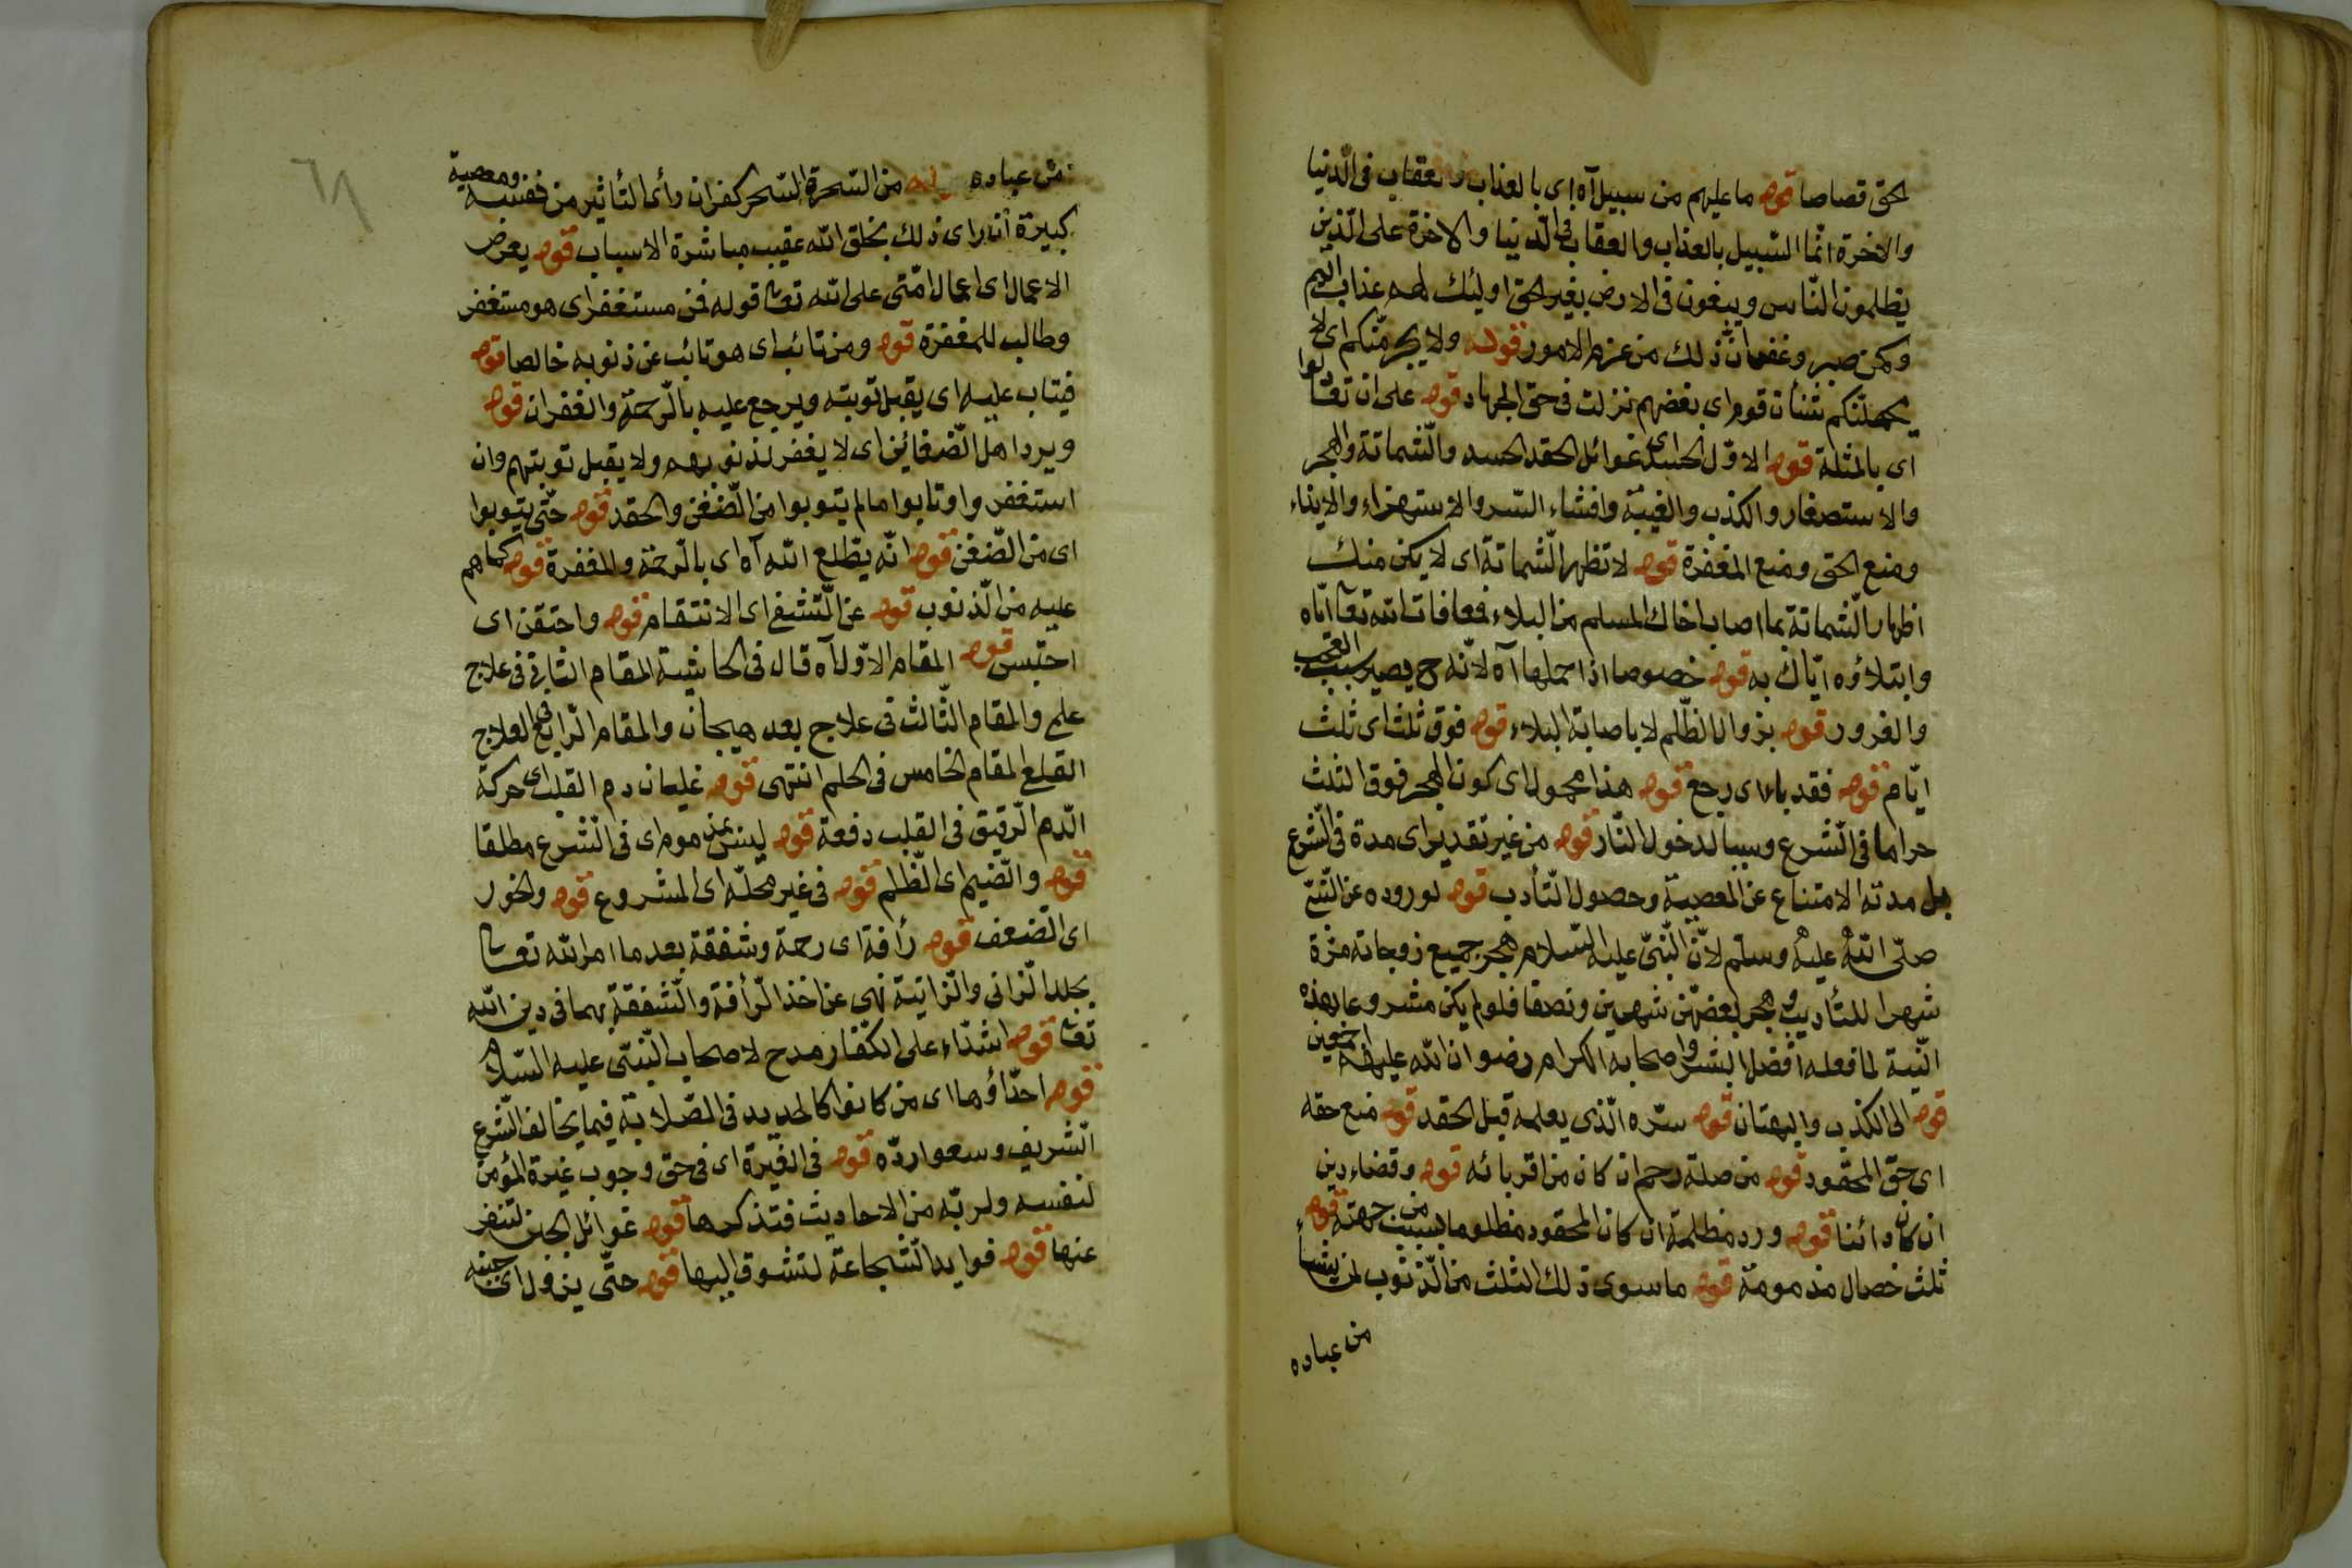 لحق قصاصا قوله ما عليهم من سبيل آه اى بالعذاب والعقاب فى الدنيا
والاخرة انما السبيل بالعذاب والعقاب فى الدنيا والاخرة على الذين
يظلمون الناس ويبغون فى الارض بغير الحق اولئك لهم عذاب اليم
ولمن صبر وغفر ان ذلك من عزم الامور قوله ولا يجرمنكم اى لا
يحملنكم شنأن قوم اى بغضهم نزلت فى حق الجهاد قوله على ان تعتدوا
اى بالمثلة قوله الاول الحسد اى غوائل الحقد الحسد والشماتة والهجر
والاستصغار والكذب والغيبة وافشاء السر والاستهزاء والايذاء
ومنع الحق ومنع المغفرة قوله لا تظهر الشماتة اى لا يكن منك
اظهار الشماتة بما اصاب اخاك المسلم من البلاء فمعافات الله تعا اياه
وابتلاؤه اياك به قوله خصوصا اذا حملها آه لانه ح يصير سبب العجب
والغرور قوله بزوال الظلم لا باصابة البلاء قوله فوق ثلث اى ثلث
ايام قوله فقد باء اى رجع قوله هذا محمول اى كون الهجر فوق الثلث
حراما فى الشرع وسببا لدخول النار قوله من غير تقدير اى مدة فى الشرع
بل مدته الامتناع عن المعصية وحصول التأدب قوله لوروده عن النبى
صلى الله عليه وسلم لان النبى عليه السلام هجر جميع زوجاته مرة
شهرا للتأديب وهجر بعضهن شهرين ونصفا فلو لم يكن مشروعا بهذه
النية لما فعله افضل البشر واصحابه الكرام رضوان الله عليهم اجمعين
قوله الى الكذب والبهتان قوله سره الذى يعلمه قبل الحقد قوله منع حقه
اى حق المحقود قوله من صلة رحم ان كان من اقربائه قوله وقضاء دين
ان كان دائنا قوله ورد مظلمة ان كان المحقود مظلوما بسبب من جهته قوله
ثلث خصال مذمومة قوله ما سوى ذلك الثلث من الذنوب لمن يشاء
من عباده
من عباده قوله من السحرة السحر كفر ان رأى التأثير من نفسه ومعصية
كبيرة ان راى ذلك بخلق الله عقيب مباشرة الاسباب قوله يعرض
الاعمال اى اعمال امتى على الله تعا قوله فمن مستغفر اى هو مستغفر
وطالب للمغفرة قوله ومن تائب اى هو تائب عن ذنوبه خالصا قوله
فيتاب عليه اى يقبل توبته ويرجع عليه بالرحمة والغفران قوله
ويرد اهل الضغائن اى لا يغفر لذنوبهم ولا يقبل توبتهم وان
استغفروا وتابوا ما لم يتوبوا من الضغن والحقد قوله حتى يتوبوا
اى من الضغن قوله انه يطلع الله آه اى بالرحمة والمغفرة قوله كما هم
عليه من الذنوب قوله عن التشفى اى الانتقام قوله واحتقن اى
احتبس قوله المقام الاول آه قال فى الحاشية المقام الثانى فى علاج
علمى والمقام الثالث فى علاج بعد هيجان والمقام الرابع فى العلاج
القلعى المقام الخامس فى الحلم انتهى قوله غليان دم القلب اى حركة
الدم الرقيق فى القلب دفعة قوله ليس بمذموم اى فى الشرع مطلقا
قوله والضيم اى الظلم قوله فى غير محله اى المشروع قوله والخور
اى الضعف قوله رأفة اى رحمة وشفقة بعد ما امر الله تعا
بجلد الزانى والزانية نهى عن اخذ الرأفة والشفقة بهما فى دين الله
تعا قوله اشداء على الكفار مدح لاصحاب النبى عليه السلام
قوله احداؤها اى من كانوا كالحديد فى الصلابة فيما يخالف الشرع
الشريف وسعوا رده قوله فى الغيرة اى فى حق وجوب غيرة المؤمن
لنفسه ولربه من الاحاديث فتذكرها قوله غوائل الجبن لتنفر
عنها قوله فوايد الشجاعة لتشوق اليها قوله حتى يزول اى جبنه